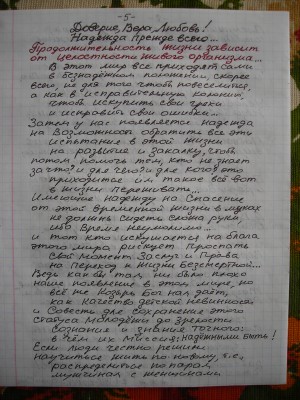 - 5 -
Доверие, Вера, Любовь!
Надежда прежде всего...
Продолжительность жизни зависит
от целостности живого организма...
В этот мир все приходят сами
в безнадёжном положении, скорее
всего, не для того чтоб повеселиться,
а как в исправительную комнату,
чтоб искупить свои грехи
и исправить свои ошибки...
Затем у нас появляется надежда
на возможность обратить все эти
испытания в этой жизни
на развитие и закалку, чтоб
потом помочь тем, кто не знает
за что и для чего и для кого это
приходится им такое всё вот
в жизни переживать...
Имеющие надежду на Спасение
от этой временной жизни в муках
не должны сидеть сложа руки,
ибо Время неумолимо...
и тот кто искушается на блага
этого мира рискует Проспать
свой момент Заслуг и Права
на Переход к Жизни Бессмертной...
Ведь как бы там не было плохо
наше появление в этот мир, но
всё же Козырь Бог нам даёт,
как качество детской невинности
и Совесть для сохранение этого
статуса молодёжи до зрелости
Сознания и знания точного:
в чём их Миссия; надёжными быть!
Если люди честно решили
научиться жить по-новому, т.е.,
распределиться по парам,
мужчинам с женщинами